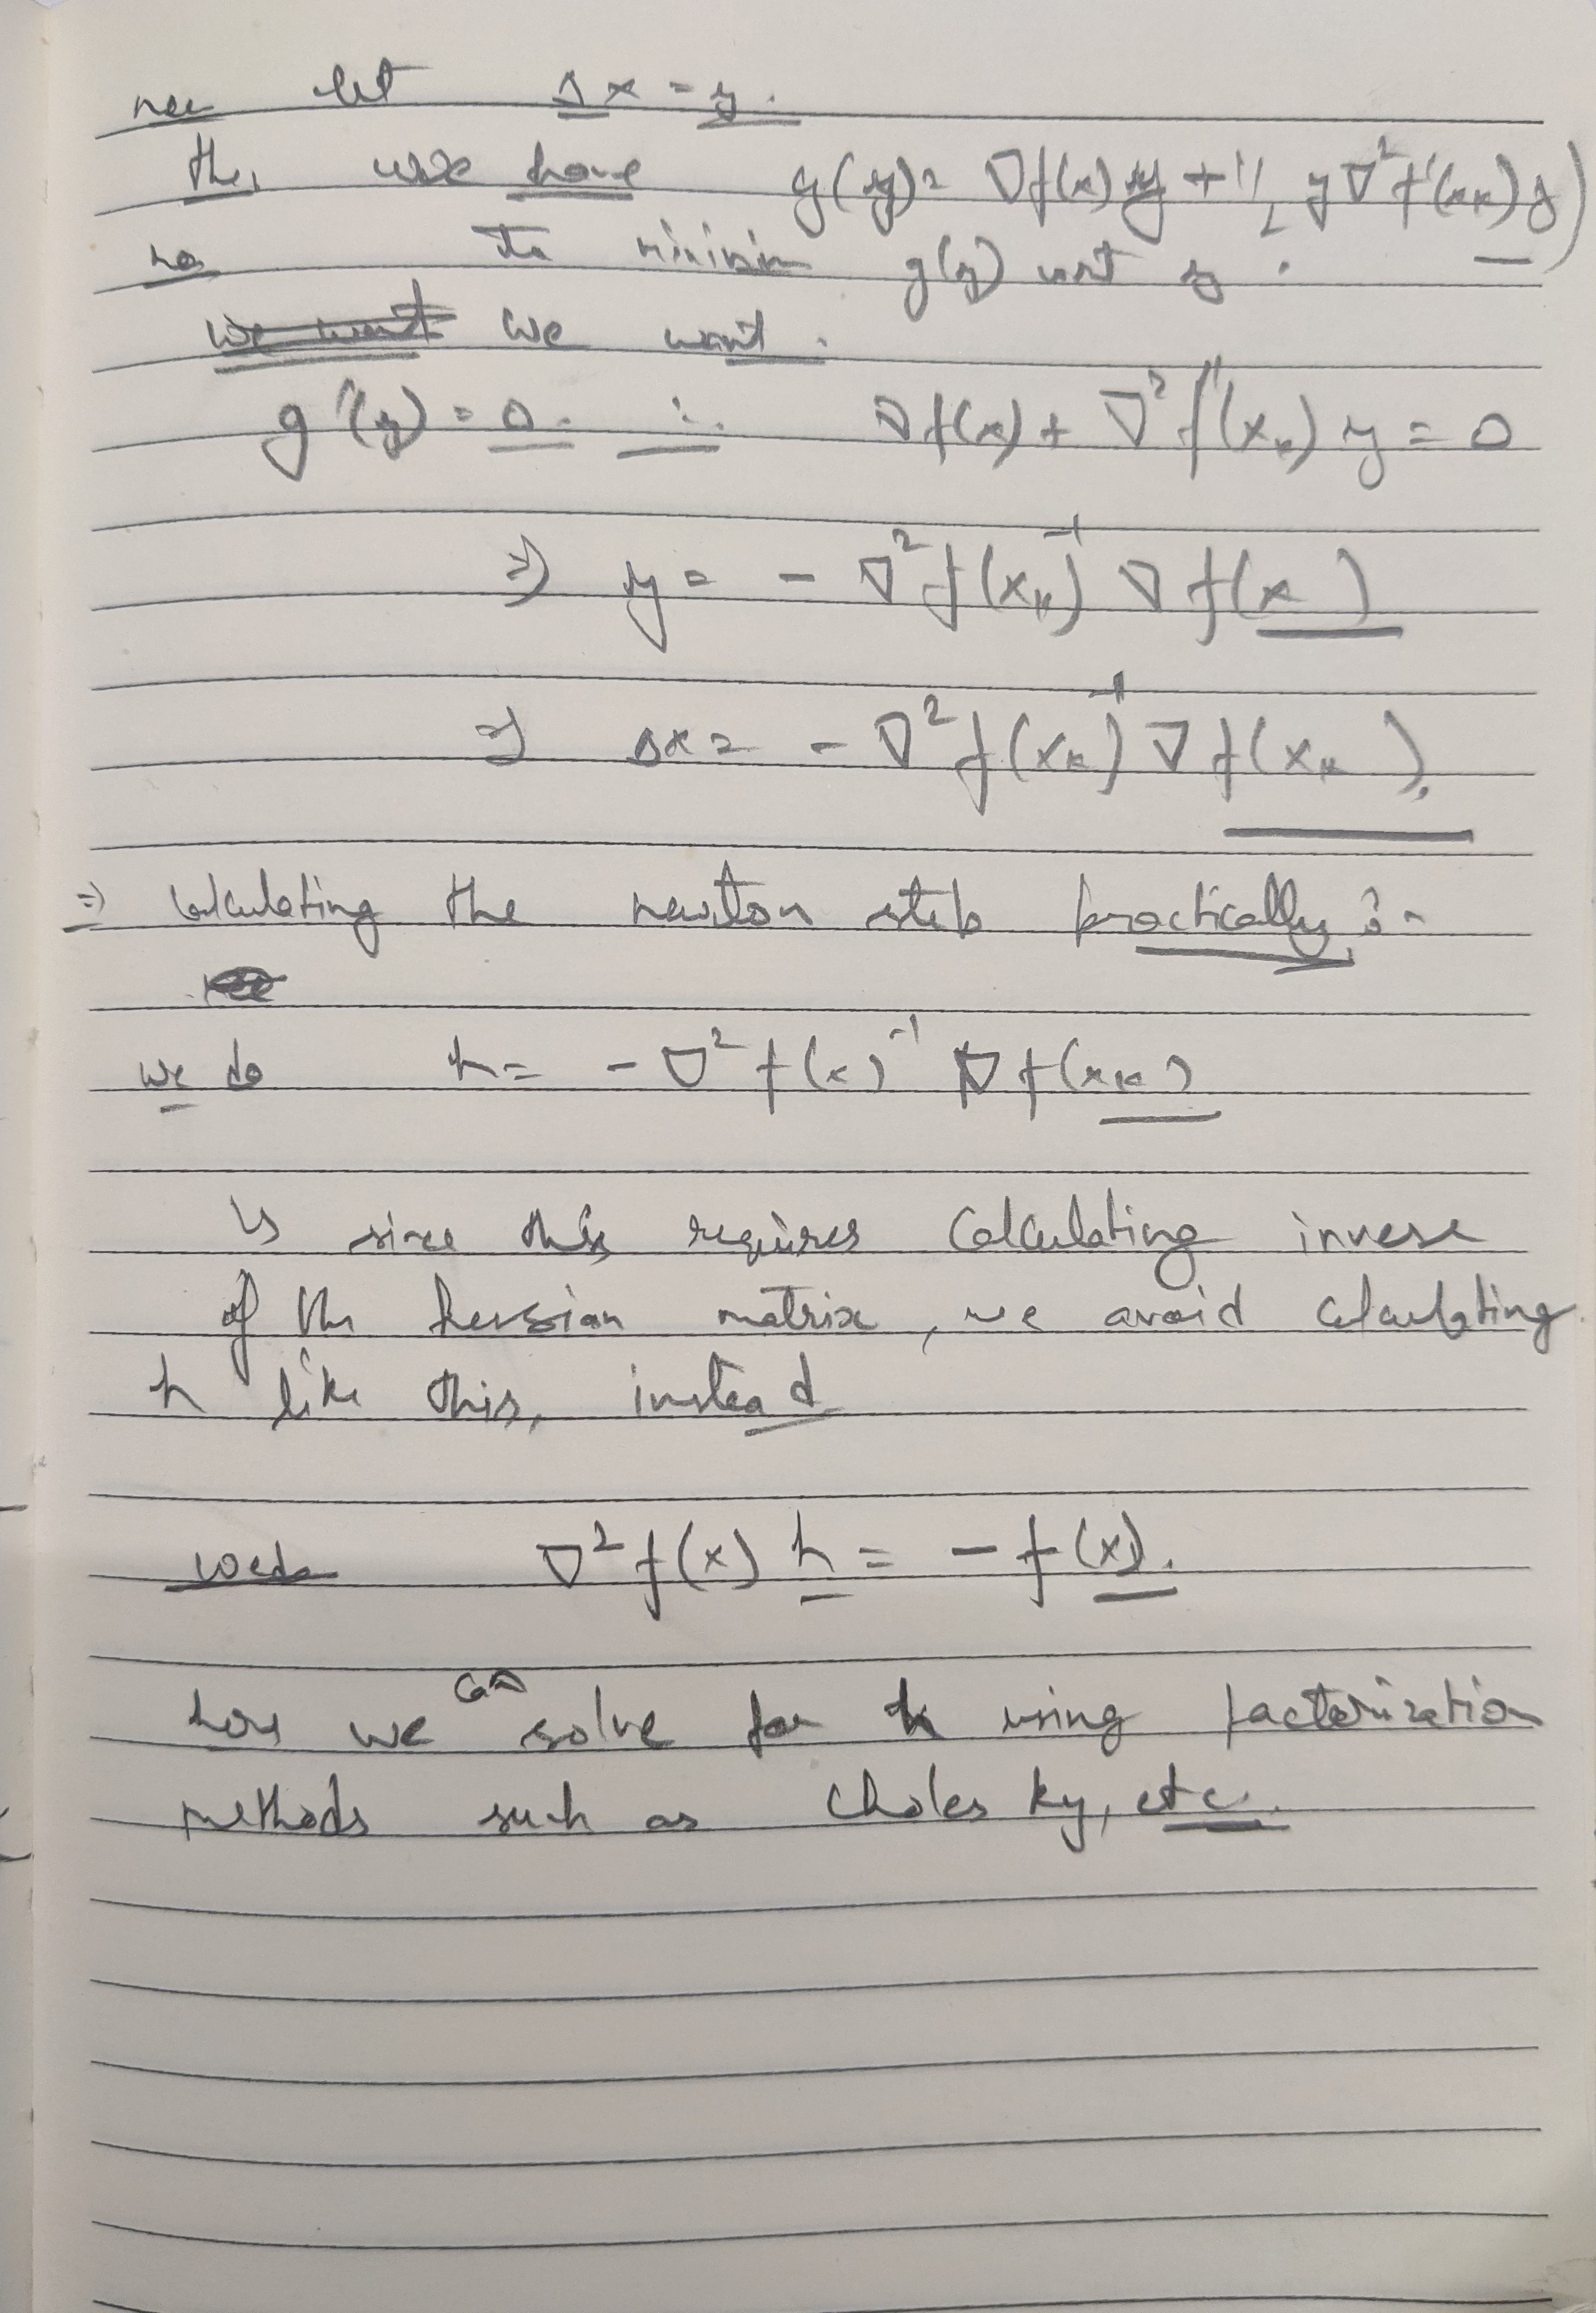 now let Δx = y.
then we have g(y) = ∇f(x) y + 1/2 y ∇²f(xₖ) y)
now to minimize g(y) wrt y.
we want we want.
g'(y) = 0. ∴ ∇f(x) + ∇²f(xₖ) y = 0
⇒ y = - ∇²f(xₖ)⁻¹ ∇f(x)
⇒ Δx = - ∇²f(xₖ)⁻¹ ∇f(xₖ).
⇒ calculating the newton step practically :-
we do h = - ∇²f(x)⁻¹ ∇f(xₖ)
↳ since this requires calculating inverse
of the hessian matrix, we avoid calculating
h like this, instead
we do ∇²f(x) h = - f(x).
we can solve for h using factorization
methods such as Cholesky, etc.